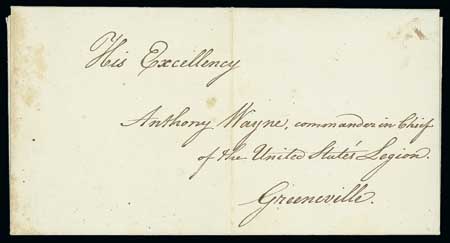 His Excellency
Anthony Wayne, commander in Chief
of the United State's Legion.
Greeneville.